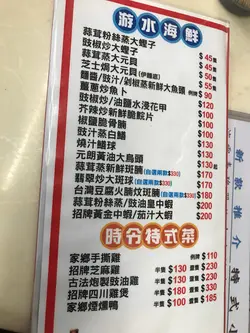 游水海鮮
蒜茸粉絲蒸大蟶子 $45隻
豉椒炒大蟶子 $45隻
蒜茸蒸大元貝 $50隻
芝士焗大元貝(伊麵底) $55隻
麵醬/豉汁/剁椒蒸新鮮大魚頭 例牌 $90
薑蔥炒魚卜 $100
豉椒炒/油鹽水浸花甲 $120
芥辣炒新鮮脆鯇片 $120
椒鹽脆骨腩 $100
豉汁蒸白鱔 $130
燒汁鱔球 $130
元朗黃油大烏頭 $130
蒜茸蒸新鮮斑腩(自選兩款$330)
翡翠炒大斑球(自選兩款$330) $200
台灣豆腐火腩炆斑腩(自選兩款$330) $180
蒜茸粉絲蒸/豉油皇中蝦 $200
招牌黃金中蝦/茄汁大蝦 $200
時令特式菜
家鄉手撕雞 例牌 $110
招牌芝麻雞 半隻 $130 壹隻 $230
古法炮製豉油雞 半隻 $130 壹隻 $230
招牌四川雞煲 半隻 $180 壹隻 $330
家鄉煙燻鴨 半隻 $100 壹隻 $185
新款推介